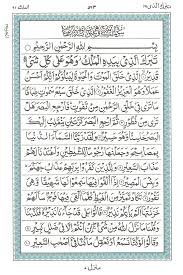 تبرك الذی ۲۹
الملك ۶۷
بِسْمِ اللهِ الرَّحْمٰنِ الرَّحِیْمِ
تَبٰرَكَ الَّذِیْ بِیَدِهِ الْمُلْكُ وَهُوَ عَلٰی كُلِّ شَیْءٍ
قَدِیْرُ الَّذِیْ خَلَقَ الْمَوْتَ وَالْحَیٰوةَ لِیَبْلُوَكُمْ اَیُّكُمْ اَحْسَنُ
عَمَلًا وَهُوَ الْعَزِیْزُ الْغَفُوْرُ الَّذِیْ خَلَقَ سَبْعَ سَمٰوٰتٍ طِبَاقًا
مَا تَرٰی فِیْ خَلْقِ الرَّحْمٰنِ مِنْ تَفٰوُتٍ فَارْجِعِ الْبَصَرَ هَلْ
تَرٰی مِنْ فُطُوْرٍ ثُمَّ ارْجِعِ الْبَصَرَ كَرَّتَیْنِ یَنْقَلِبْ اِلَیْكَ الْبَصَرُ
خَاسِئًا وَّهُوَ حَسِیْرٌ وَلَقَدْ زَیَّنَّا السَّمَآءَ الدُّنْیَا
بِمَصَابِیْحَ وَجَعَلْنٰهَا رُجُوْمًا لِّلشَّیٰطِیْنِ وَاَعْتَدْنَا لَهُمْ عَذَابَ
السَّعِیْرِ وَلِلَّذِیْنَ كَفَرُوْا بِرَبِّهِمْ عَذَابُ جَهَنَّمَ
وَبِئْسَ الْمَصِیْرُ اِذَآ اُلْقُوْا فِیْهَا سَمِعُوْا لَهَا شَهِیْقًا وَّهِیَ
تَفُوْرُ تَكَادُ تَمَیَّزُ مِنَ الْغَیْظِ كُلَّمَآ اُلْقِیَ فِیْهَا فَوْجٌ سَاَلَهُمْ
خَزَنَتُهَآ اَلَمْ یَاْتِكُمْ نَذِیْرٌ قَالُوْا بَلٰی قَدْ جَآءَنَا نَذِیْرٌ فَكَذَّبْنَا
وَقُلْنَا مَا نَزَّلَ اللهُ مِنْ شَیْءٍ اِنْ اَنْتُمْ اِلَّا فِیْ ضَلٰلٍ كَبِیْرٍ
وَقَالُوْا لَوْ كُنَّا نَسْمَعُ اَوْ نَعْقِلُ مَا كُنَّا فِیْٓ اَصْحٰبِ السَّعِیْرِ
منزل ۷